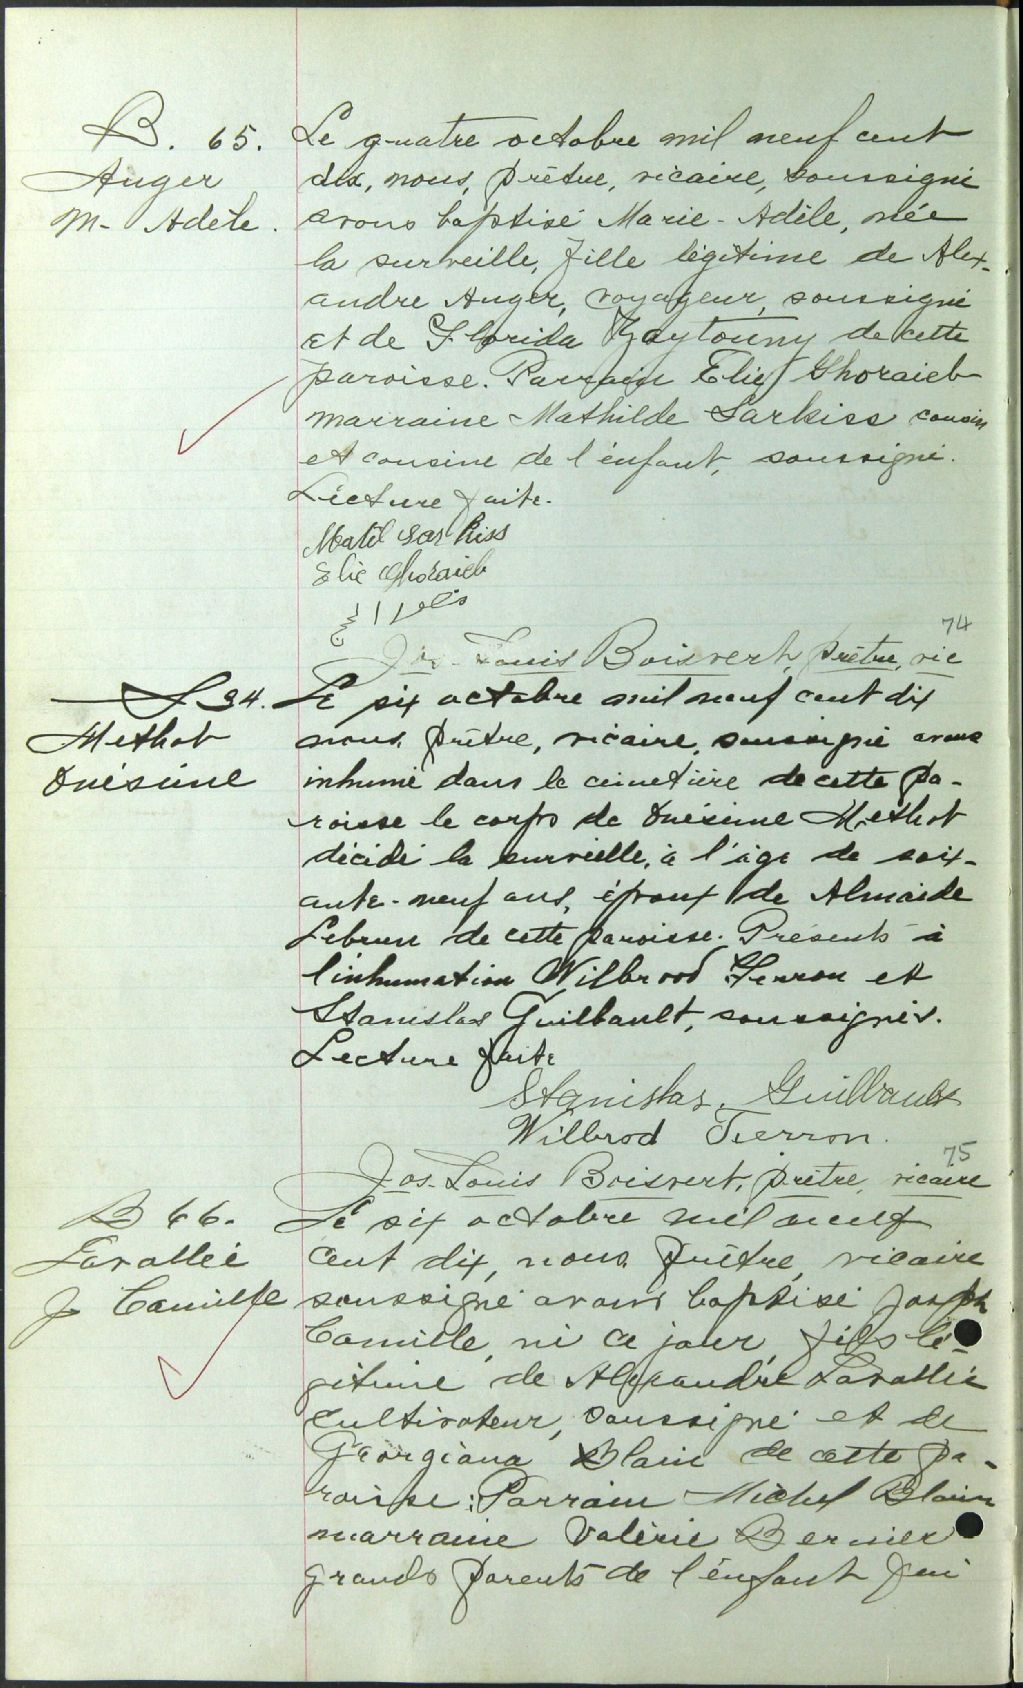 B. 65.
Auger
M- Adèle.
Le quatre octobre mil neuf cent
dix, nous, prêtre, vicaire, soussigné
avons baptisé Marie-Adèle, née
la surveille, fille légitime de Alex-
andre Auger, voyageur, soussigné
et de Florida Zaytouny de cette
paroisse. Parrain Elie Ghoraieb
marraine Mathilde Sarkiss cousin
et cousine de l'enfant, soussigné.
Lecture faite.
Matil Sarkiss
Elie Ghoraieb
74
Jos-Louis Boisvert, prêtre, vic
S 34.
Methot
Onésime
Le six octobre mil neuf cent dix
nous, prêtre, vicaire, soussigné avons
inhumé dans le cimetière de cette pa-
roisse le corps de Onésime Methot
décédé la surveille, à l'âge de soix-
ante-neuf ans, époux de Almaide
Lebrun de cette paroisse. Présents à
l'inhumation Wilbrood Ferron et
Stanislas Guilbault, soussignés.
Lecture faite
Stanislas. Guilbault
Wilbrod Ferron.
75
Jos-Louis Boisvert, prêtre, vicaire
B 66.
Lavallée
J Camille
Le six octobre mil neuf
cent dix, nous, prêtre, vicaire
soussigné avons baptisé Joseph
Camille, né ce jour, fils lé-
gitime de Alexandre Lavallée
cultivateur, soussigné et de
Georgiana Blain de cette pa-
roisse. Parrain Michel Blain
marraine Valérie Bernier
grands parents de l'enfant qui